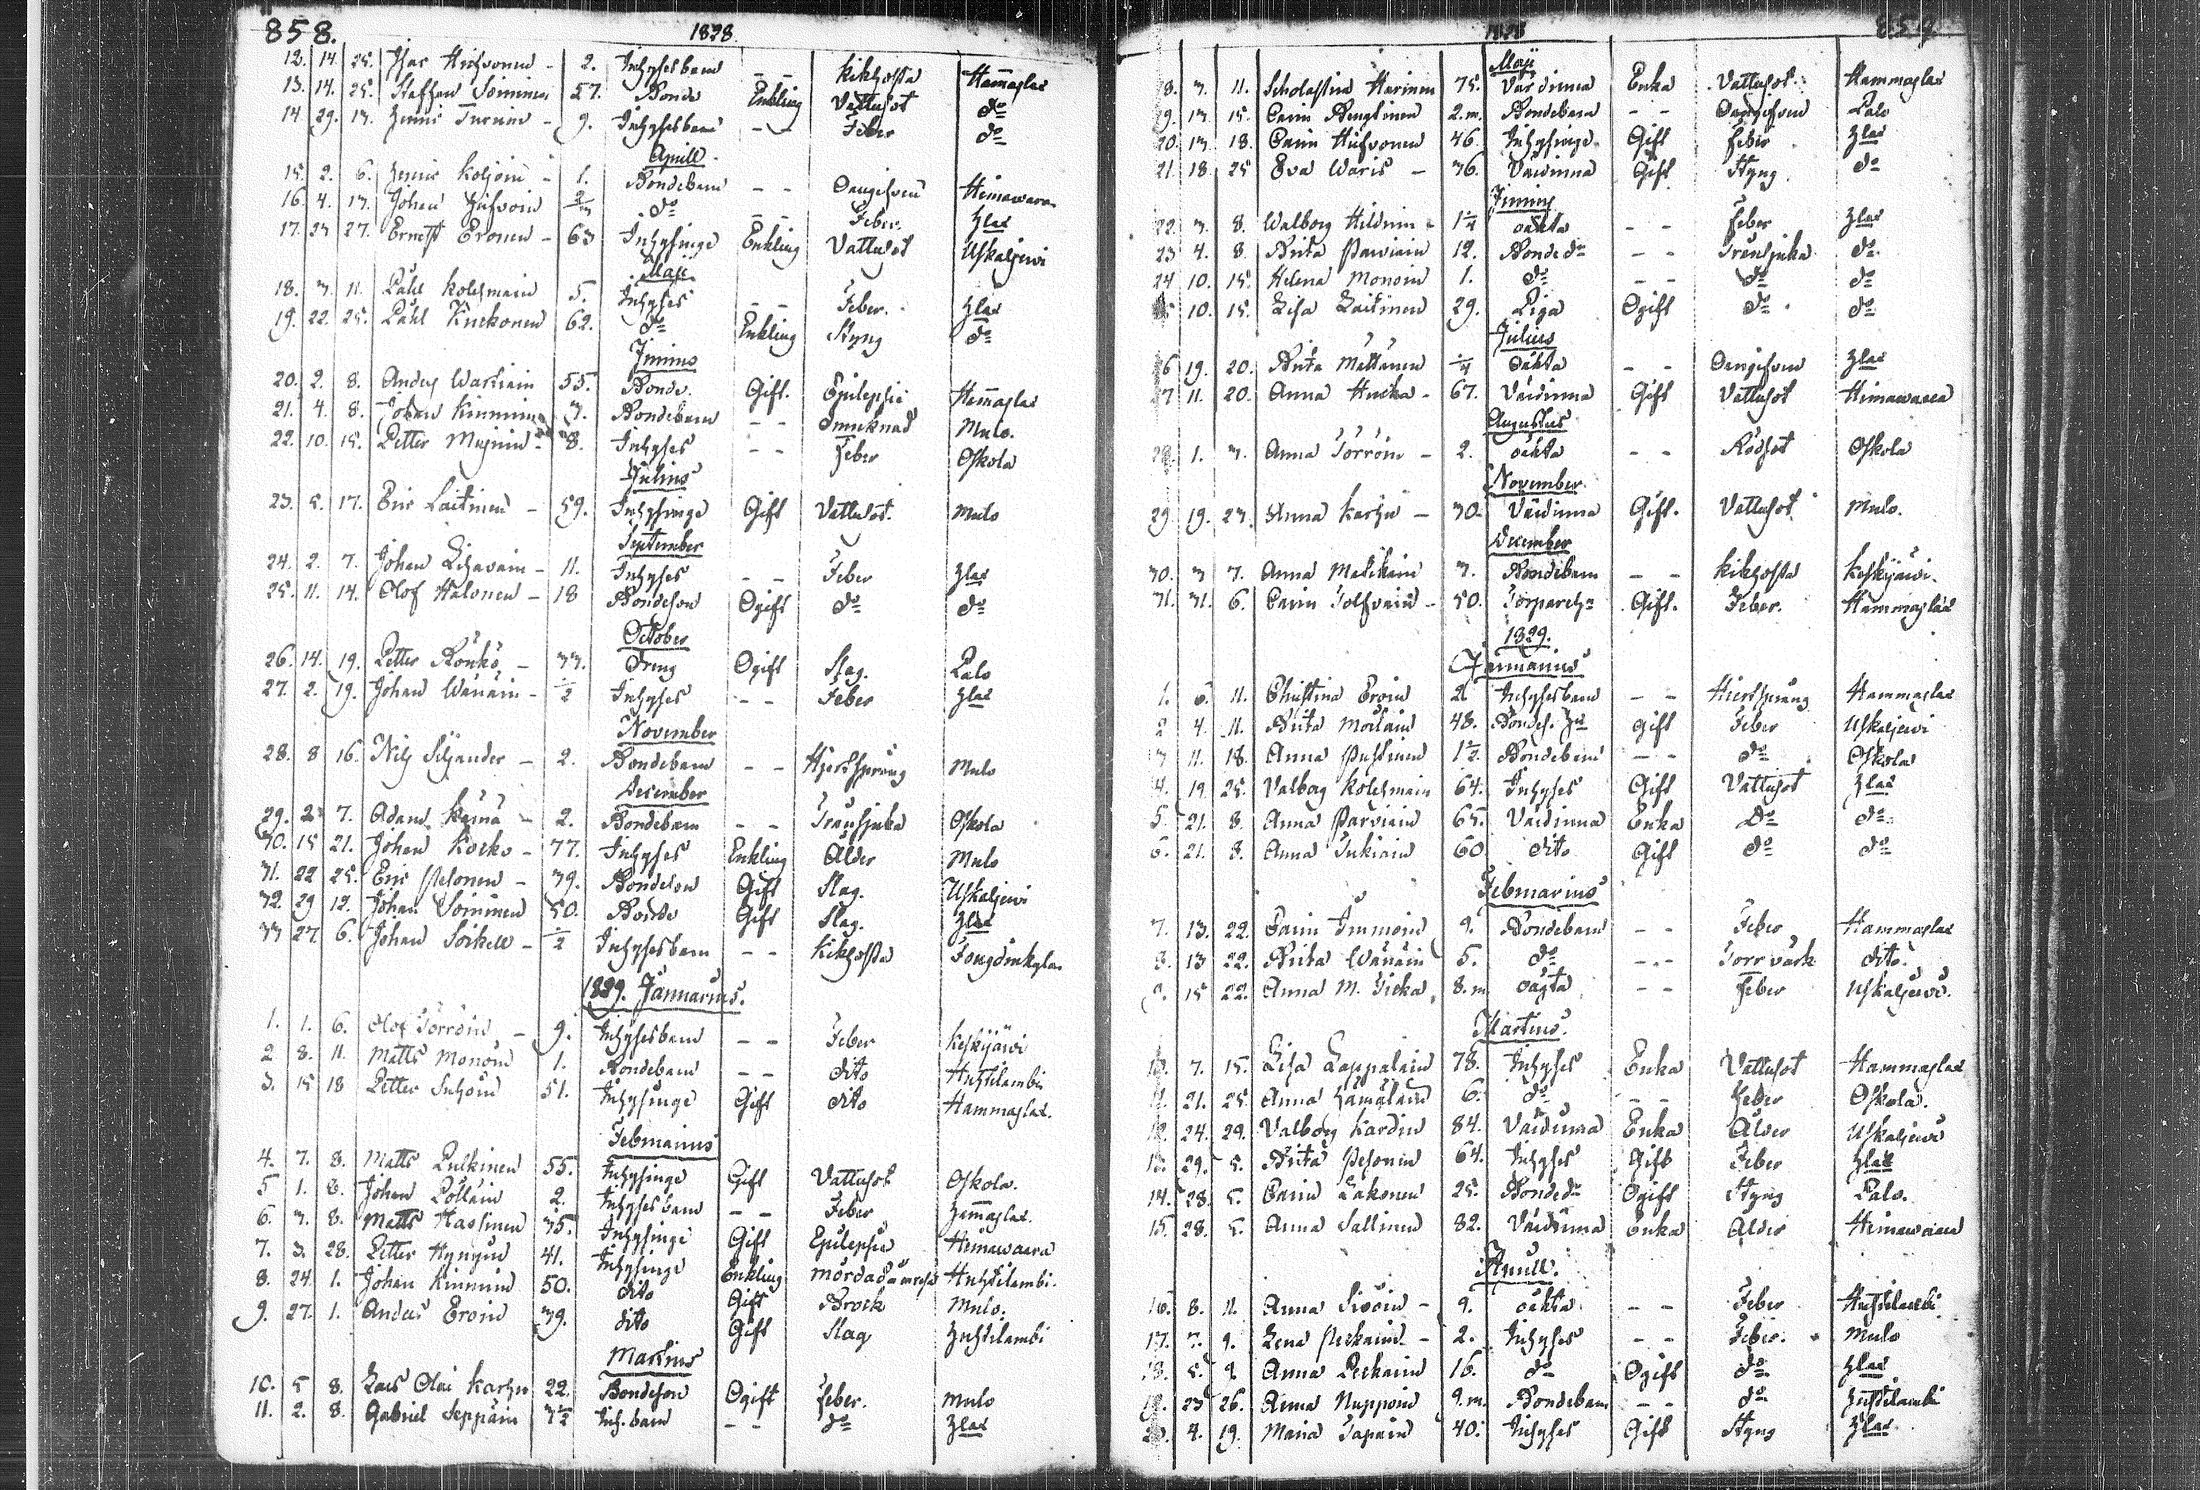 858.
1828
12. 14. 25. Isac Hirfvonen - 2. Inhysesbarn - - Kikhosta Hammaslax
13. 14. 25. Staffan Soininen 57. Bonde Enkling Vattusot do
14 29. 13. Henric Turunen - 9. Inhysesbarn - - Feber do
Aprill.
15. 2. 6. Henric Koljoin - 1. Bondebarn - - Oangifven Heinawara
16. 4. 13. Johan 2/3 do - - Feber.
17. 23 27. Ernest Eronen - 63 Inhysinge Enkling Vattusot Uskaljerwi
Maji
18. 3. 11. Påhl Kolehmain 5. Inhyses - - Feber.
19. 22. 25. Påhl Knekonen 62. do Enkling Styng do
Junius
20. 2. 8. Anders Wartiain 55. Bonde. Gift. Epilepsie Hammaslax
21. 4. 8. Johan Kinnunen 3. Bondebarn - - Drucknad Mulo.
22. 10. 15. Petter Mujunin - 8. Inhyses - - Feber Oskola
Julius
23. 5. 17. Eric Laitinen - 59. Inhysinge Gift Vattusot. Mulo
September
24. 2. 7. Johan Lihavain - 11. Inhyses - - Feber
25. 11. 14. Olof Halonen - 18 Bondeson Ogift do do
October
26. 14. 19. Petter Rönkö - 33. Dreng Ogift Slag. Palo
27. 2. 19. Johan Wänäin - 1/2 Inhyses - - Feber
November
28. 8 16. Nils Siljander - 2. Bondebarn - - Hjertsprång Mulo
December
29. 2 7. Adam Kämä - 2. Bondebarn - - Transjuka Oskola
30. 15 21. Johan Kocko - 77. Inhyses Enkling Ålder Mulo
31. 22 25. Eric Pesonen - 39. Bondeson Gift Slag. Uskaljerwi
32. 29 12. Johan Soininen 50. Bonde Gift Slag.
33 27. 6. Johan Soikell - 1/2 Inhysesbarn - - Kikhosta
1829. Januarius.
1. 1. 6. Olof Torröin - 9. Inhysesbarn - - Feber Keskijärwi
2 8. 11. Matts Monoin 1. Bondebarn - - dito Huhtilambi
3. 15 18 Petter Suhoin 51. Inhysinge Gift dito Hammaslax.
Februarius
4. 7. 8. Matts Pulkinen 55. Inhysinge Gift Vattusot Oskola.
5 1. 8. Johan Pöllain 2. Inhysesbarn - - Feber Hammaslax.
6. 3. 8. Matts Hassinen 35. Inhysinge Gift Epilepsie Heinawaara
7. 3. 28. Petter Hynynen 41. Inhysinge Enkling Huhtilambi.
8. 24. 1. Johan Kinnunen 50. dito Gift Brock Mulo.
9. 27. 1. Anders Eroin 39. dito Gift Slag Huhtilambi
Martius
10. 5 8. Lars Olai Karhu 22. Bondeson Ogift Feber. Mulo
11. 2. 8. Gabriel Seppäin 3 1/2 Inh. barn - - do
1828
859.
Maji
18. 3. 11. Scholastica Harinen 75. Värdinna Enka Vattusot Hammaslax
19. 13. 15. Carin Bengtinen 2.m. Bondebarn - - Oangifven Palo
20. 13. 18. Carin Hirfvonen 46. Inhysinge Gift Feber
21. 18. 25 Eva Waris - 36. Värdinna Gift Styng do
Junius
22. 3. 8. Walborg Hildunin 1 1/4 oäkta - - Feber
23 4. 8. Brita Parviain 12. Bonde dr - - Transjuka do
24 10. 15. Helena Monoin 1. do - - do do
25 10. 15. Lisa Laitinen 29. Piga Ogift do do
Julius
26 19. 20. Brita Mattanen 1/4 Oäkta - - Oangifven
27 11. 20. Anna Hucka - 67. Värdinna Gift Vattusot Heinawaara
Augustus
28. 1. 3. Anna Torröin - 2. oäkta - - Rödsot Oskola
November
29. 19. 23. Anna Karhu - 30. Värdinna Gift. Vattusot Mulo.
December
30. 3 7. Anna Matikain 3. Bondebarn - - Kikhosta Keskijärwi.
31. 31. 6. Carin Tolfvain - 50. Gift. Feber. Hammaslax
1829.
Januarius
1. 6. 11. Christina Eroin 2 Inhysesbarn - - Hiertsprång Hammaslax
2 4. 11. Brita Moilain 48. Gift Feber Uskaljerwi
3 11. 18. Anna Puhtinen 1 1/2 Bondebarn - - do Oskola
4. 19. 25. Valborg Kolehmain 64. Inhyses Gift Vattusot
5. 21. 8. Anna Parviain 65. Värdinna Enka Do do
6. 21. 8. Anna Tukiain 60 dito Gift do do
Februarius
7. 13. 22. Carin Immoin 9. Bondebarn - - Feber Hammaslax
8. 13 22. Brita Wänäin 5. do - - Torrvärk dito.
9. 15 22. Anna M. Sicka 8. m oägta - - Feber Uskaljerwi.
Martius.
10. 7. 15. Lisa Lappalain 78. Inhyses Enka Vattusot Hammaslax
11. 21. 25. Anna Hämäläin 6. do - - Feber Oskola.
12. 24. 29. Valborg Kardin 84. Värdinna Enka Ålder Uskaljerwi
13. 29. 5. Brita Pesonen 64. Inhyses Gift Feber
14. 28. 5. Carin Lakonen 25. Bonde dr Ogift Styng Palo.
15. 28. 5. Anna Sallinen 82. Värdinna Enka Ålder Heinawaara
Aprill.
16. 8. 11. Anna Sivöin - 9. oäkta - - Feber Huhtilambi
17. 7. 9. Lena Peckain - 2. Inhyses - - Feber. Mulo
18. 5. 9 Anna Peckain 16. do Ogift do
19. 23 26. Anna Nuppoin 9.m. Bondebarn - - do Huhtilambi
20. 4. 19. Maria Tapain 40. Inhyses Gift Styng